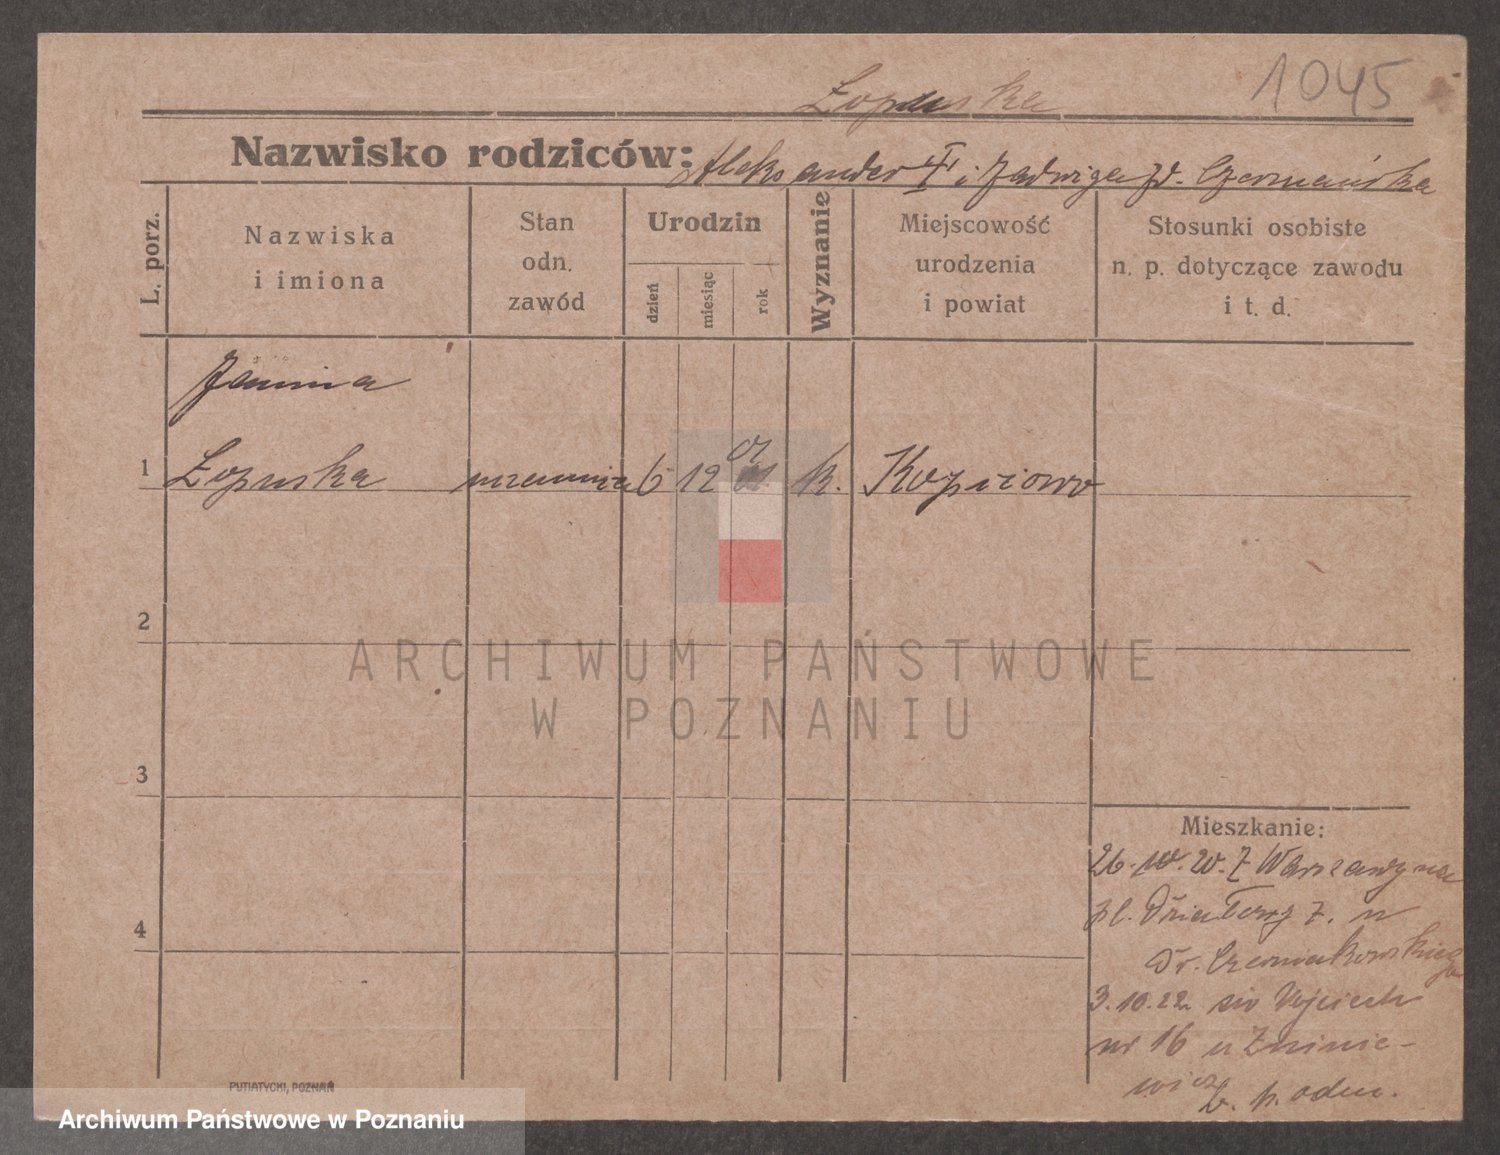 1045
Łopuska
Nazwisko rodziców: Aleksander † i Jadwiga zd. Czermańska
L. porz.
Nazwiska
i imiona
Stan
odn.
zawód
Urodzin
dzień
miesiąc
rok
Wyznanie
Miejscowość
urodzenia
i powiat
Stosunki osobiste
n. p. dotyczące zawodu
i t. d.
Janina
1 Łopuska uczennica 6 12 k. Kopciowo
2
ARCHIWUM PAŃSTWOWE
W POZNANIU
3
Mieszkanie:
26. Z Warszawy na
pl. Działowy 7. u
4
Dr. Czerniakowskiego
3.10.22 św Wojciech
nr 16 u Zninie-
wicz
b. p. odm.
PUTIATYCKI, POZNAŃ
Archiwum Państwowe w Poznaniu